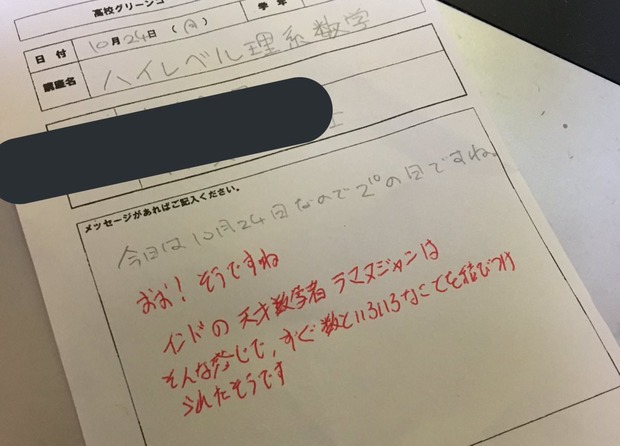 高校グリーンコ
学年
日付 10月24日(月)
講座名 ハイレベル理系数学
メッセージがあればご記入ください。
今日は10月24日なので2¹⁰の日ですね。
おお！そうですね
インドの天才数学者ラマヌジャンは
そんな感じで、すぐ数といろいろなことを結びつけ
られたそうです